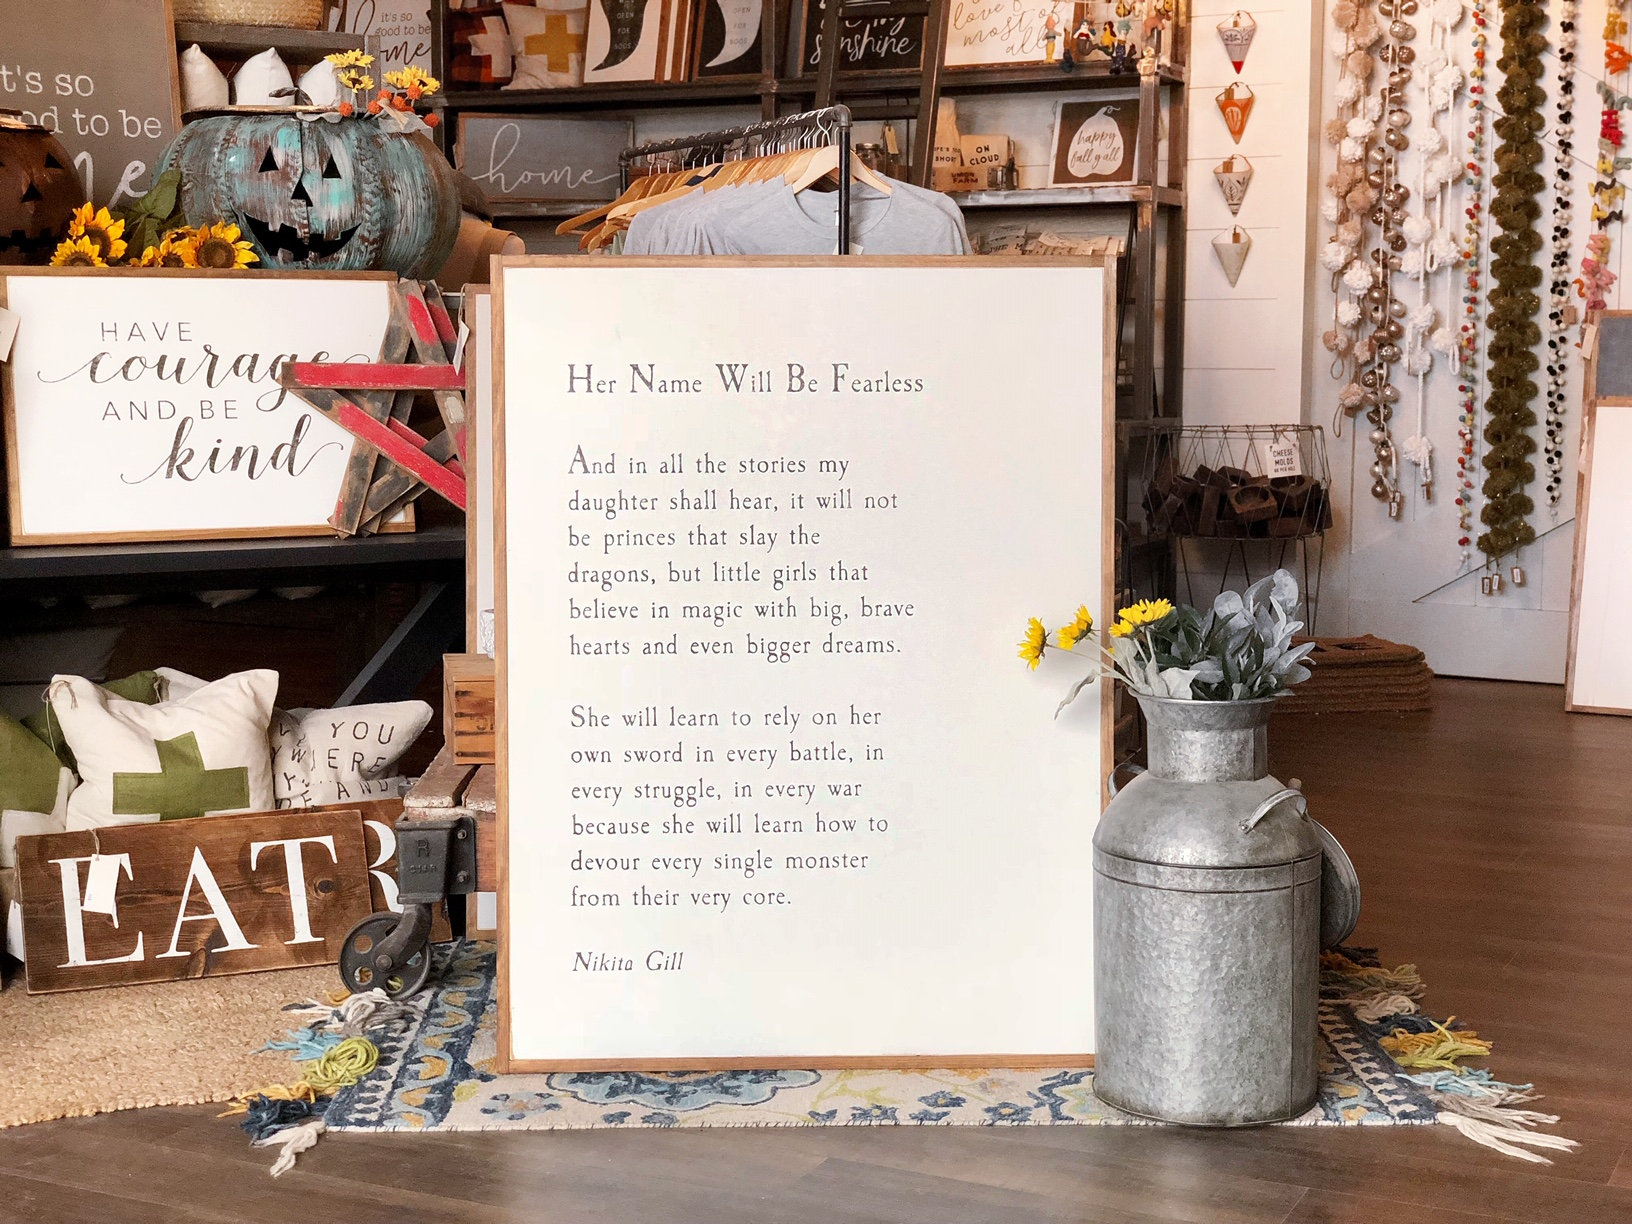 it's so
good to be
home
OPEN
FOR
BOOS
OPEN
FOR
BOOS
sunshine
love
most of
all
it's so
od to be
me
home
ON
CLOUD
happy
fall y'all
HAVE
courage
AND BE
kind
Her Name Will Be Fearless
And in all the stories my
daughter shall hear, it will not
be princes that slay the
dragons, but little girls that
believe in magic with big, brave
hearts and even bigger dreams.
She will learn to rely on her
own sword in every battle, in
every struggle, in every war
because she will learn how to
devour every single monster
from their very core.
Nikita Gill
CHEESE
MOLDS
YOU
WERE
AND
EAT
R